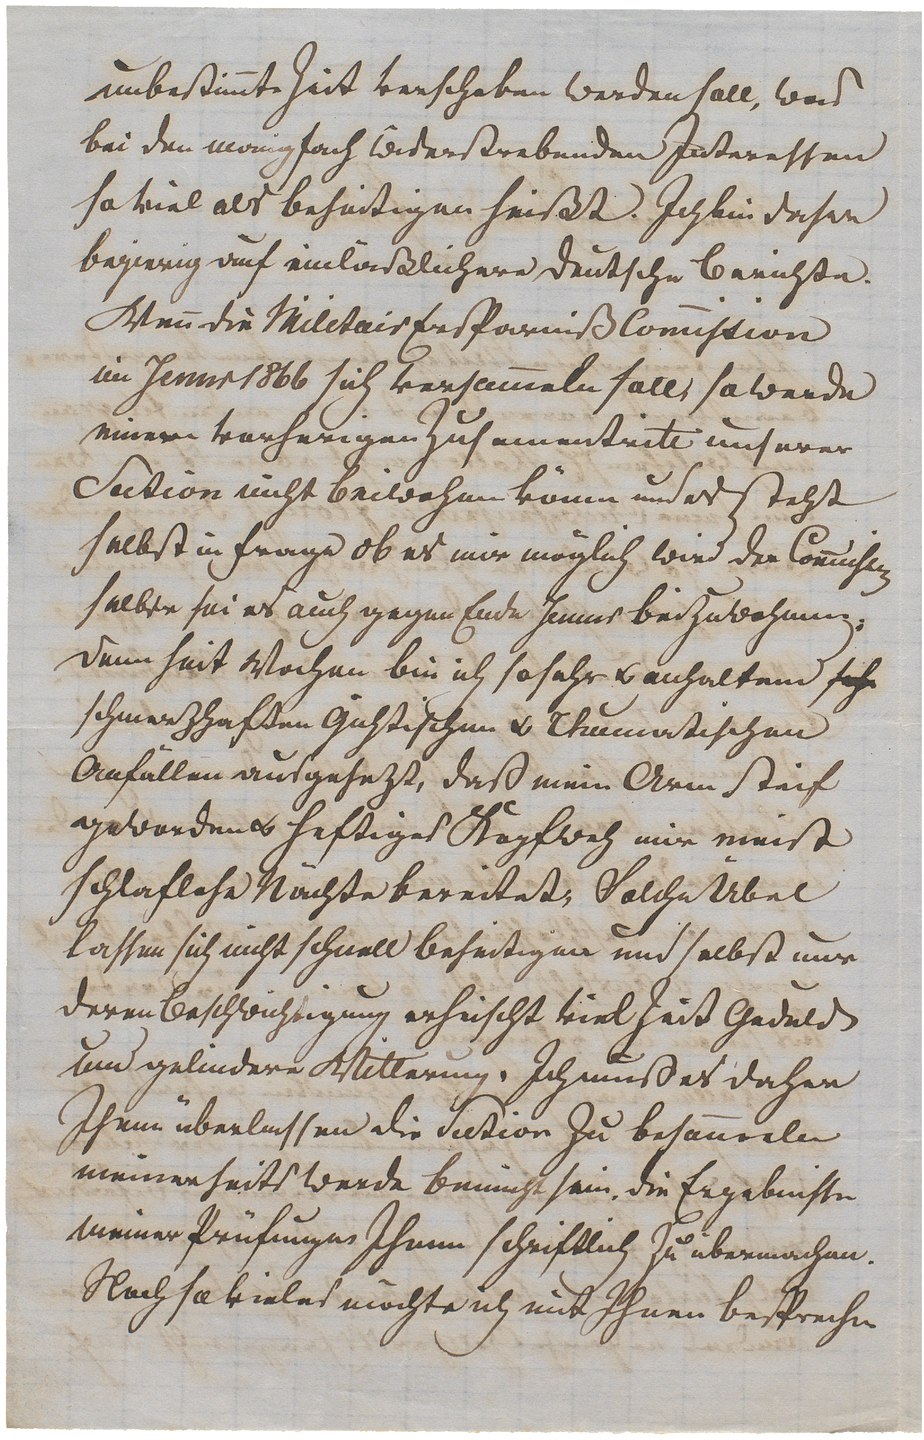 unbestim̄te Zeit verschoben werden soll, was
bei den manigfach widerstrebenden Interessen
so viel als beseitigen heißt. Ich bin daher
begierig auf einläßlichere deutsche Berichte.
Wen̄ die Militair Ersparniß Com̄ission
im Jenner 1866 sich versam̄eln soll, so werde
einem vorherigen Zusamentritt unserer
Section nicht beiwohnen könen und es steht
selbst in Frage ob es mir möglich wird der Com̄ission
selber sei es auch gegen Ende Jenner beizuwohnen;
denn seit Wochen bin ich so sehr & anhaltend
schmerzhaften Gichtischen & Rheumatischen
Anfällen ausgesetzt, daß mein Arm steif
geworden & heftiges Kopfweh mir meist
schlaflose Nächte bereitet; Solche Übel
lassen sich nicht schnell beseitigen und selbst nur
deren Beschwichtigung erheischt viel Zeit Geduld
und gelindere Witterung. Ich muß es daher
Ihnen überlassen die Section zu besam̄eln
meinerseits werde bemüht sein, die Ergebnisse
meiner Prüfungen Ihnen schriftlich zu übermachen.
Noch so vieles möchte ich mit Ihnen besprechen